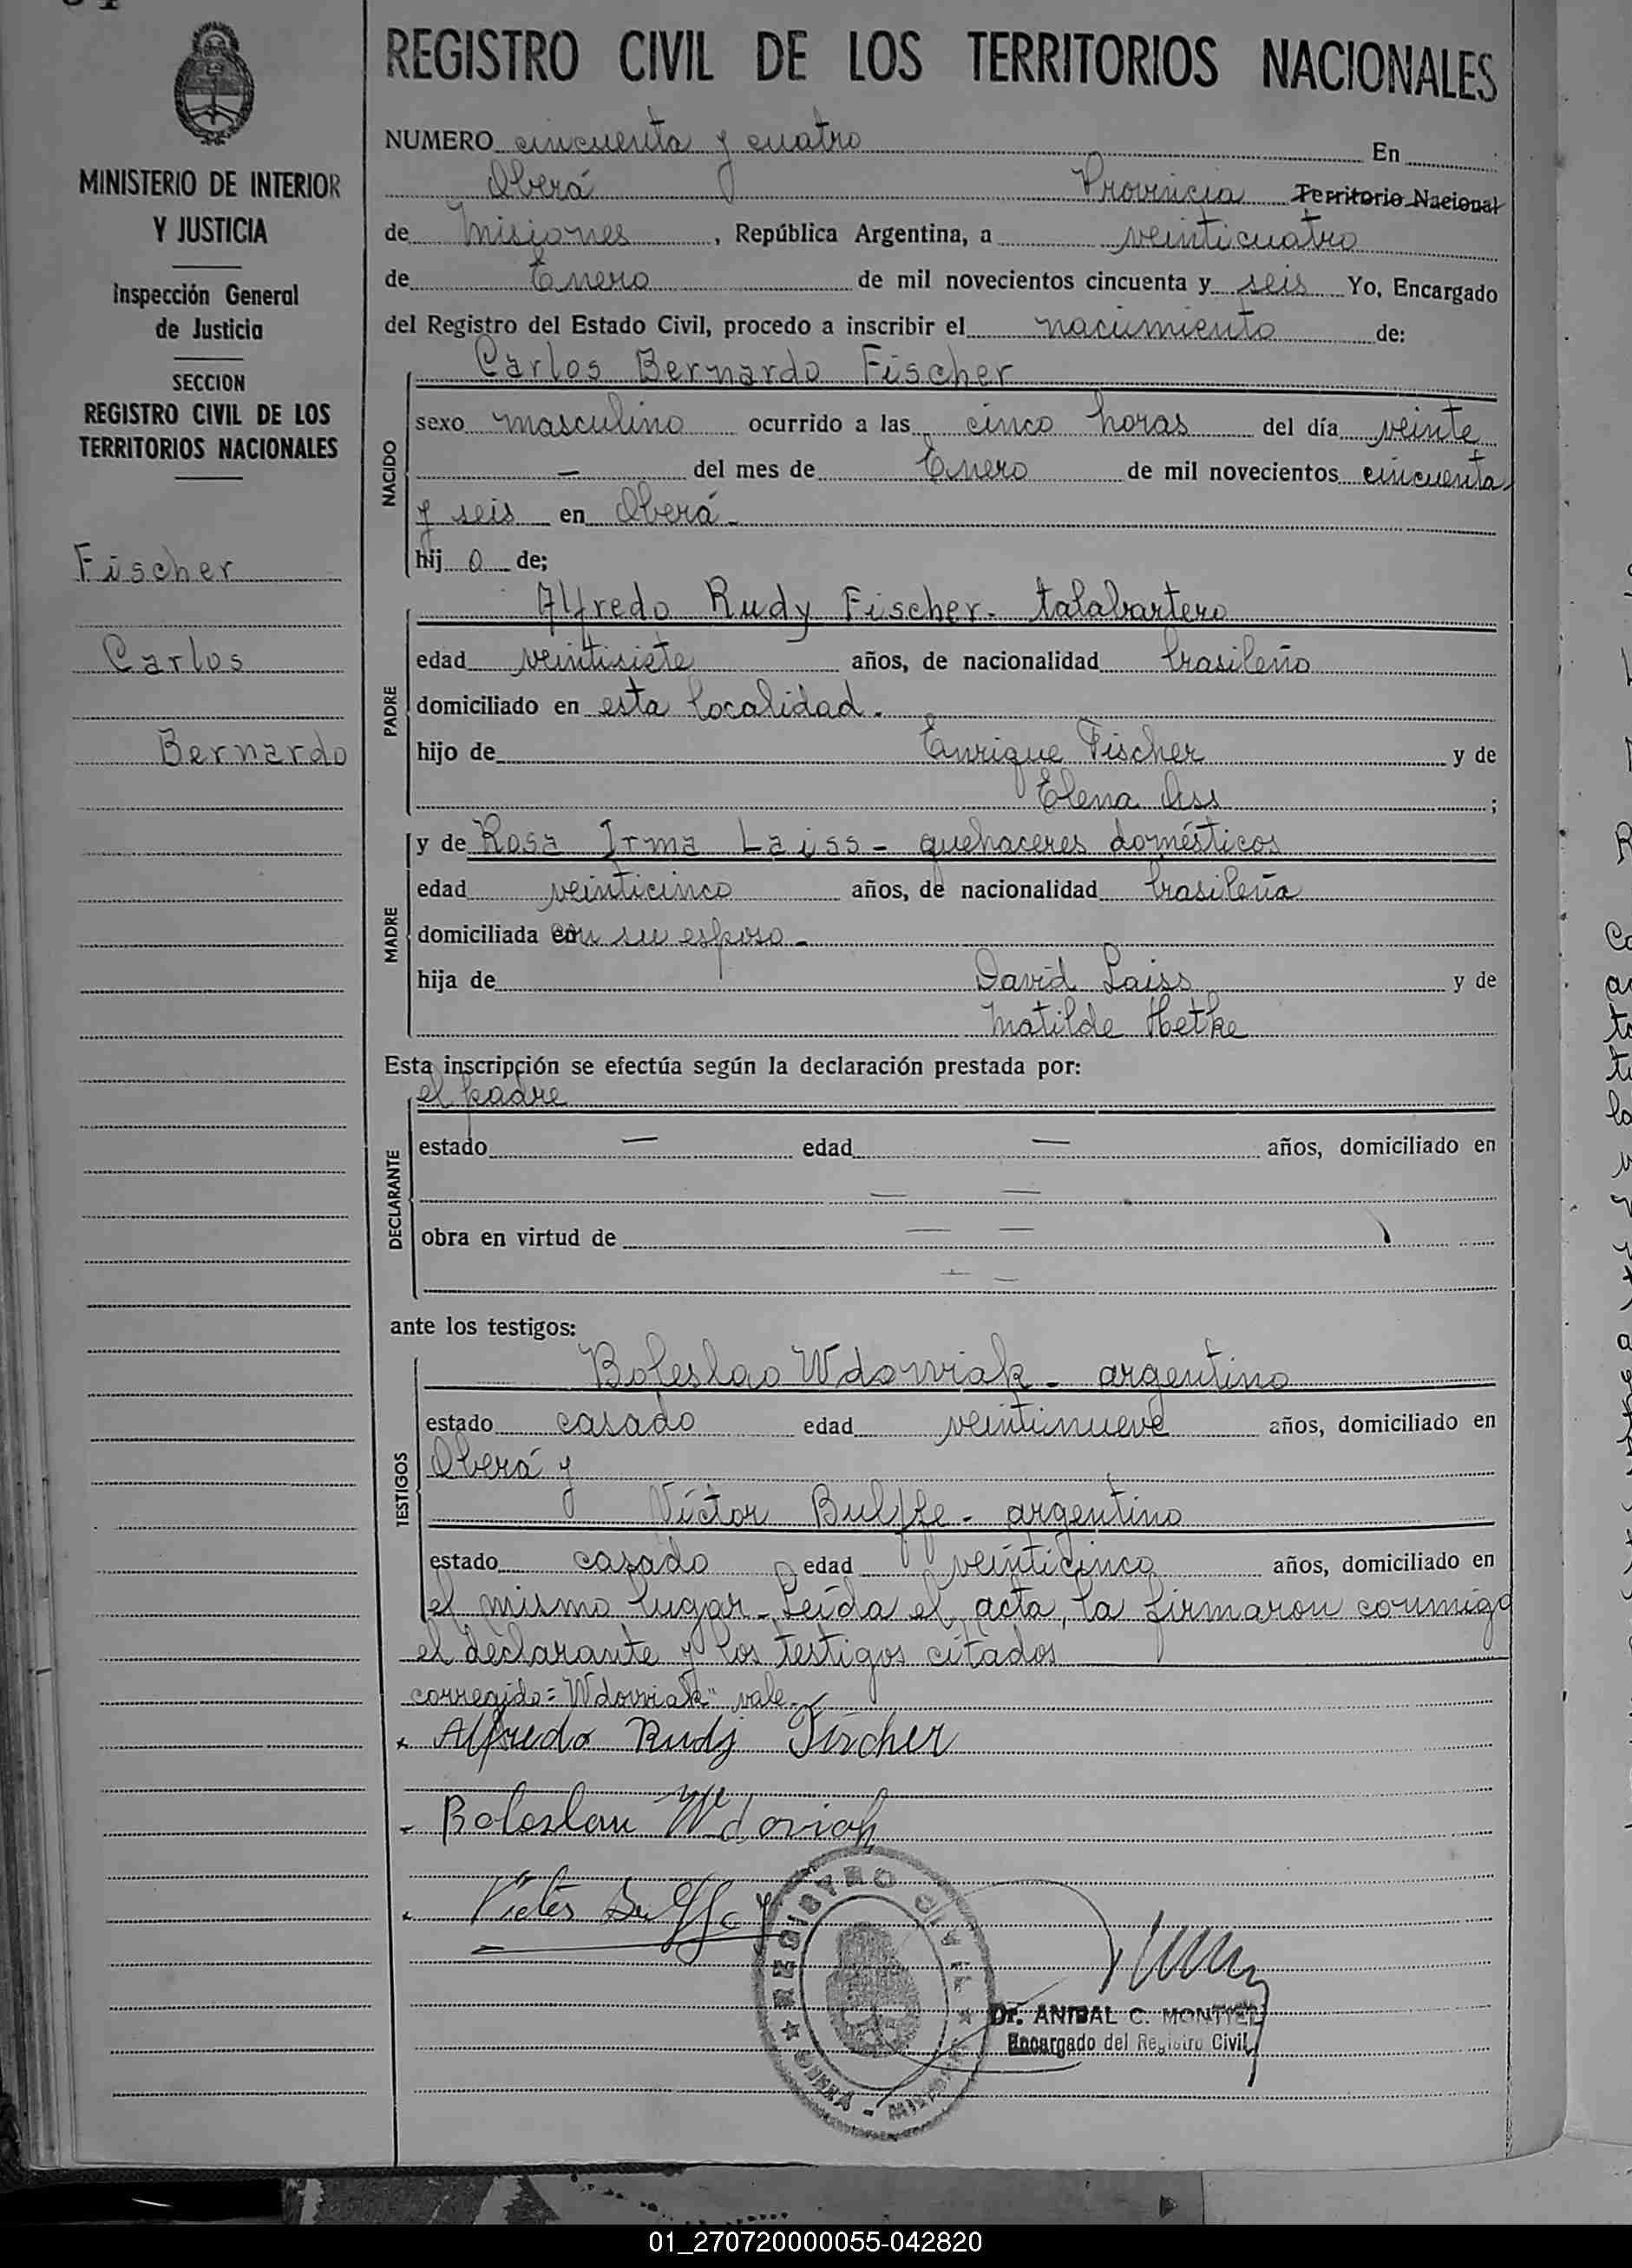 REGISTRO CIVIL DE LOS TERRITORIOS NACIONALES
MINISTERIO DE INTERIOR
Y JUSTICIA
Inspección General
de Justicia
SECCION
REGISTRO CIVIL DE LOS
TERRITORIOS NACIONALES
Fischer
Carlos
Bernardo
NUMERO cincuenta y cuatro En
Oberá Provincia Territorio Nacional
de Misiones, República Argentina, a veinticuatro
de Enero de mil novecientos cincuenta y seis Yo, Encargado
del Registro del Estado Civil, procedo a inscribir el nacimiento de:
NACIDO
Carlos Bernardo Fischer
sexo masculino ocurrido a las cinco horas del día veinte
— del mes de Enero de mil novecientos cincuenta
y seis en Oberá-
hij o de;
PADRE
Alfredo Rudy Fischer- talabartero
edad veintisiete años, de nacionalidad brasileño
domiciliado en esta localidad.
hijo de Enrique Fischer y de
Elena ;
MADRE
y de Rosa Irma Laiss- quehaceres domésticos
edad veinticinco años, de nacionalidad brasileña
domiciliada con su esposo-
hija de David Laiss y de
Matilde Hetke
Esta inscripción se efectúa según la declaración prestada por:
DECLARANTE
el padre
estado — edad — años, domiciliado en
— —
obra en virtud de — —
— —
ante los testigos:
TESTIGOS
Boleslao Wdowiak- argentino
estado casado edad veintinueve años, domiciliado en
Oberá y
Víctor Bulffe- argentino
estado casado edad veinticinco años, domiciliado en
el mismo lugar- Leída el acta, la firmaron conmigo
el declarante y los testigos citados
corregido="Wdowiak" vale-
Alfredo Rudy Fischer
Boleslau Wdoviak
REGISTRO CIVIL
OBERA - MISIONES
Dr. ANIBAL C. MONTIEL
Encargado del Registro Civil
01_270720000055-042820